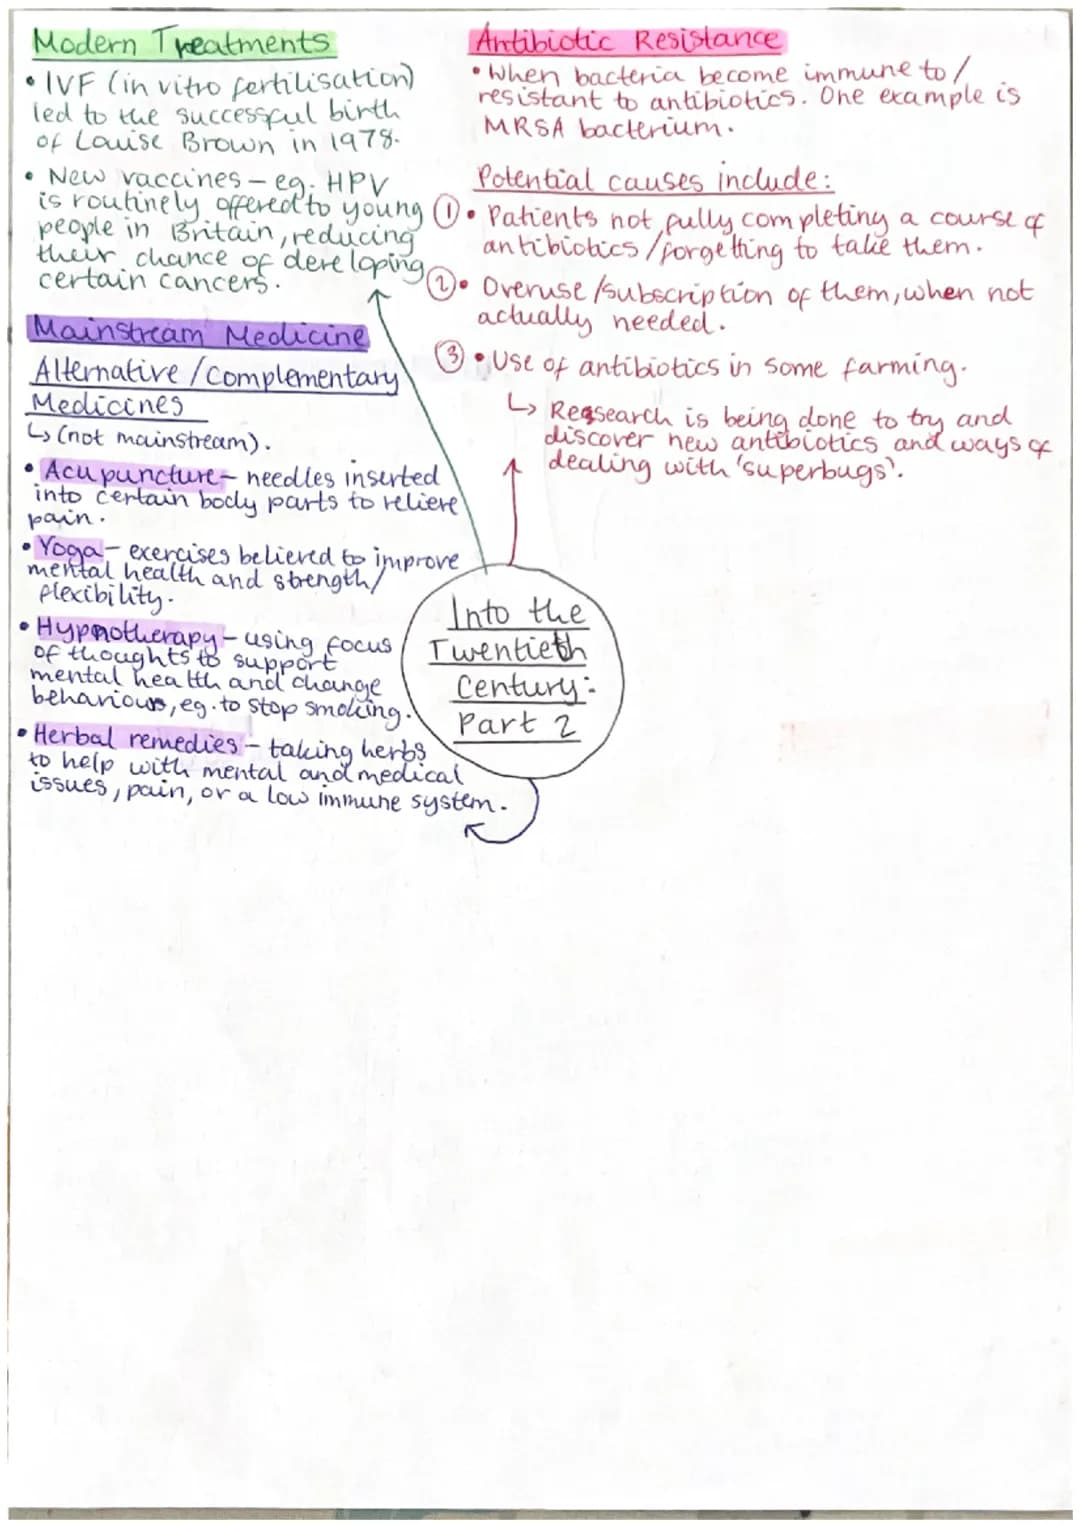 Modern Treatments
• IVF (in vitro fertilisation)
led to the successful birth
of Louise Brown in 1978.
• New vaccines – eg. HPV
is routinely offered to young
people in Britain, reducing
their chance of developing
certain cancers.
Mainstream Medicine
Alternative/Complementary
Medicines
↳ (not mainstream).
• Acupuncture – needles inserted
into certain body parts to relieve
pain.
• Yoga – exercises believed to improve
mental health and strength/
flexibility.
• Hypnotherapy – using focus
of thoughts to support
mental health and change
behaviours, eg. to stop smoking.
• Herbal remedies – taking herbs
to help with mental and medical
issues, pain, or a low immune system.
Antibiotic Resistance
• When bacteria become immune to/
resistant to antibiotics. One example is
MRSA bacterium.
Potential causes include:
① • Patients not fully completing a course of
antibiotics/forgetting to take them.
② • Overuse/subscription of them, when not
actually needed.
③ • Use of antibiotics in some farming.
↳ Reasearch is being done to try and
discover new antibiotics and ways of
dealing with 'superbugs'.
Into the
Twentieth
Century:
Part 2